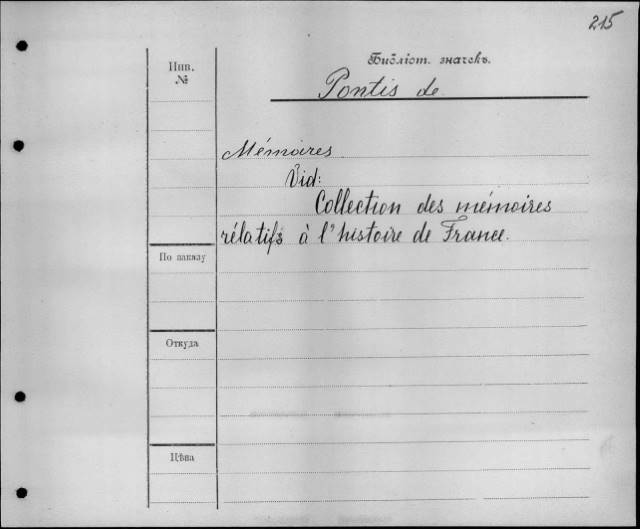 215
Инв.
№
Библіот. значекъ.
Pontis de
Mémoires
Vid:
Collection des mémoires
rélatifs à l'histoire de France.
По заказу
Откуда
Цѣна